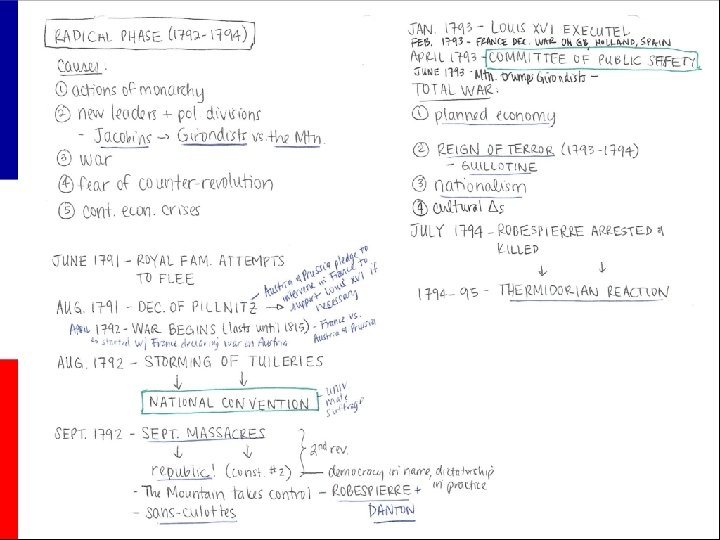 RADICAL PHASE (1792-1794)
Causes:
① actions of monarchy
② new leaders + pol. divisions
- Jacobins → Girondists vs. the Mtn.
③ war
④ fear of counter-revolution
⑤ cont. econ. crises
JUNE 1791 - ROYAL FAM. ATTEMPTS
TO FLEE
AUG. 1791 - DEC. OF PILLNITZ →
Austria & Prussia pledge to
intervene in France to
support Louis XVI if
necessary
APRIL 1792 - WAR BEGINS (lasts until 1815) - France vs.
Austria & Prussia
↳ started w/ France declaring war on Austria
AUG. 1792 - STORMING OF TUILERIES
↓ ↓
NATIONAL CONVENTION - univ
male
suffrage
SEPT. 1792 - SEPT. MASSACRES
↓ ↓
2nd rev.
republic! (const. #2) — democracy in name, dictatorship
in practice
- The Mountain takes control - ROBESPIERRE +
DANTON
- sans-culottes
JAN. 1793 - LOUIS XVI EXECUTED
FEB. 1793 - FRANCE DEC. WAR ON GB, HOLLAND, SPAIN
APRIL 1793 - COMMITTEE OF PUBLIC SAFETY
JUNE 1793 - Mtn. trump Girondists -
TOTAL WAR:
① planned economy
② REIGN OF TERROR (1793-1794)
- GUILLOTINE
③ nationalism
④ cultural Δs
JULY 1794 - ROBESPIERRE ARRESTED &
KILLED
↓ ↓
1794-95 - THERMIDORIAN REACTION